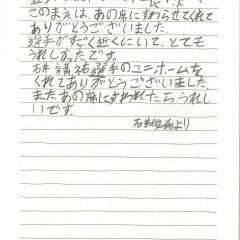 このまえは、あの席にすわらせてくれて
ありがとうございました。
選手がすごく近くにいて、とても
うれしかったです。
選手のユニホームを
くれてありがとうございました。
またあの席にすわれたらうれし
いです。
より